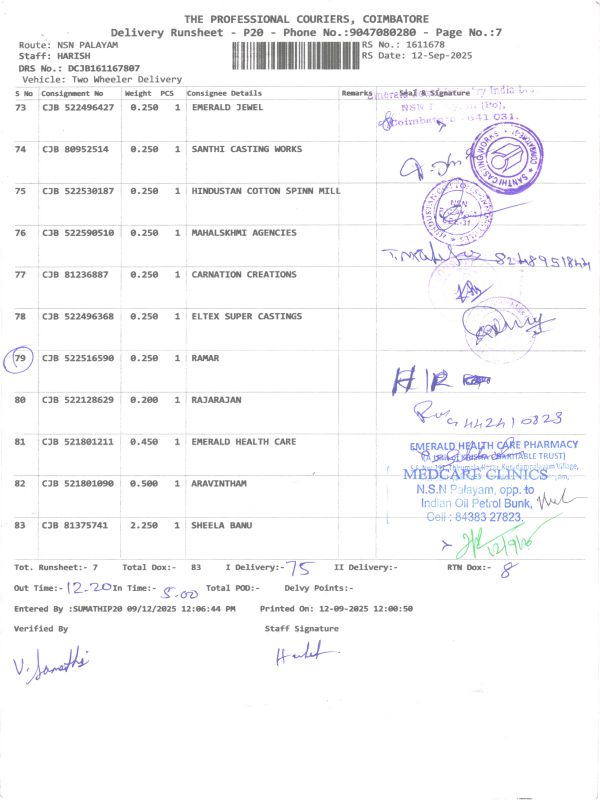 THE PROFESSIONAL COURIERS, COIMBATORE
Delivery Runsheet - P20 - Phone No.:9047080280 - Page No.:7
Route: NSN PALAYAM RS No.: 1611678
Staff: HARISH RS Date: 12-Sep-2025
DRS No.: DCJB161167807
Vehicle: Two Wheeler Delivery
S No Consignment No Weight PCS Consignee Details Remarks Seal & Signature
73 CJB 522496427 0.250 1 EMERALD JEWEL
Coimbatore 641 031.
74 CJB 80952514 0.250 1 SANTHI CASTING WORKS
SANTHI CASTING WORKS
75 CJB 522530187 0.250 1 HINDUSTAN COTTON SPINN MILL
NSN
76 CJB 522590510 0.250 1 MAHALSKHMI AGENCIES
8248951844
77 CJB 81236887 0.250 1 CARNATION CREATIONS
78 CJB 522496368 0.250 1 ELTEX SUPER CASTINGS
79 CJB 522516590 0.250 1 RAMAR
80 CJB 522128629 0.200 1 RAJARAJAN
9442410823
81 CJB 521801211 0.450 1 EMERALD HEALTH CARE
EMERALD HEALTH CARE PHARMACY
CHARITABLE TRUST)
82 CJB 521801090 0.500 1 ARAVINTHAM
MEDCARE CLINICS
N.S.N Palayam, opp. to
Indian Oil Petrol Bunk,
Cell : 84383 27823.
83 CJB 81375741 2.250 1 SHEELA BANU
Tot. Runsheet:- 7 Total Dox:- 83 I Delivery:- 75 II Delivery:- RTN Dox:- 8
Out Time:- 12.20 In Time:- 5.00 Total POD:- Delvy Points:-
Entered By :SUMATHIP20 09/12/2025 12:06:44 PM Printed On: 12-09-2025 12:00:50
Verified By Staff Signature
V. Sumathi